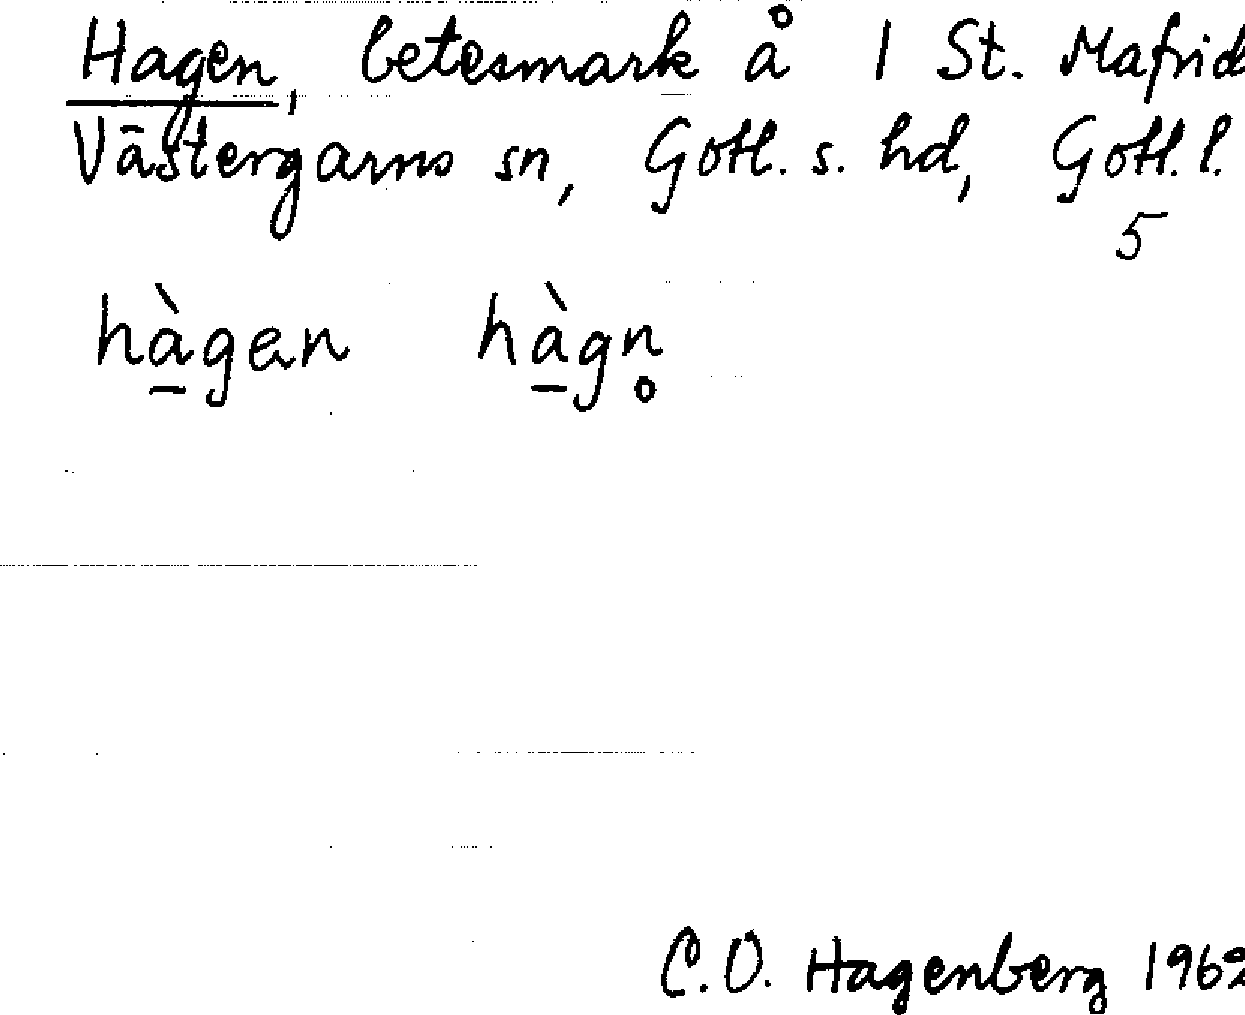 Hagen, betesmark å 1 St. Mafrid
Västergarns sn, Gotl. s. hd, Gotl. l.
5
hà̠gen hà̠gn̥
C.O. Hagenberg 1962